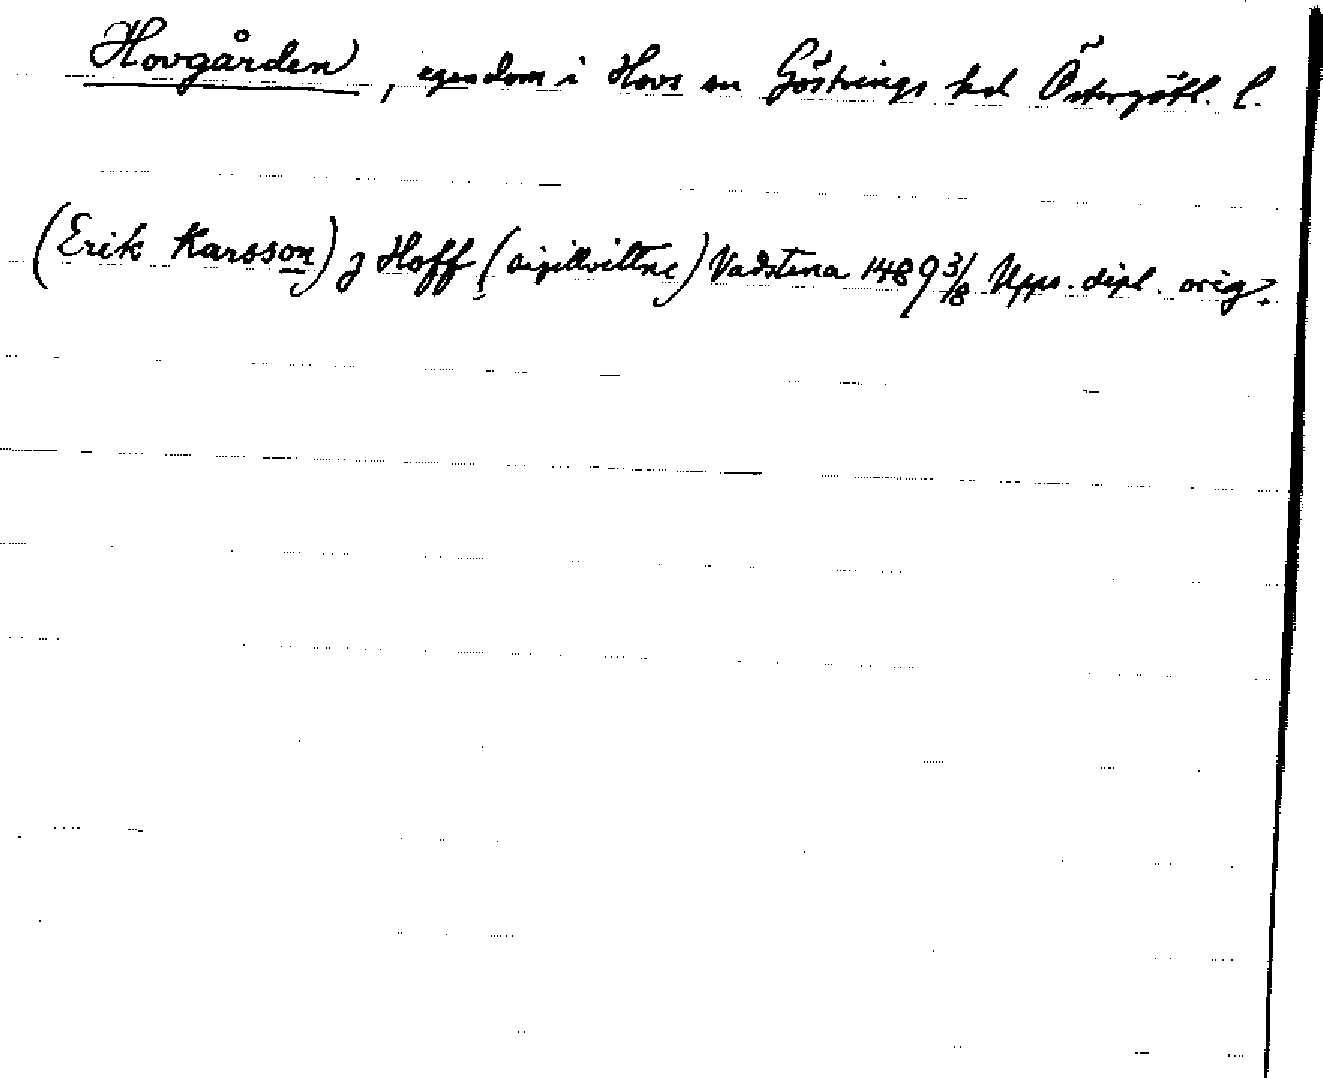 Hovgården, egendom i Hovs sn Göstrings hd Östergötl. l.
(Erik Karsson) j Hoff (sigillvittne) Vadstena 1489 3/8 Upps. dipl. orig.